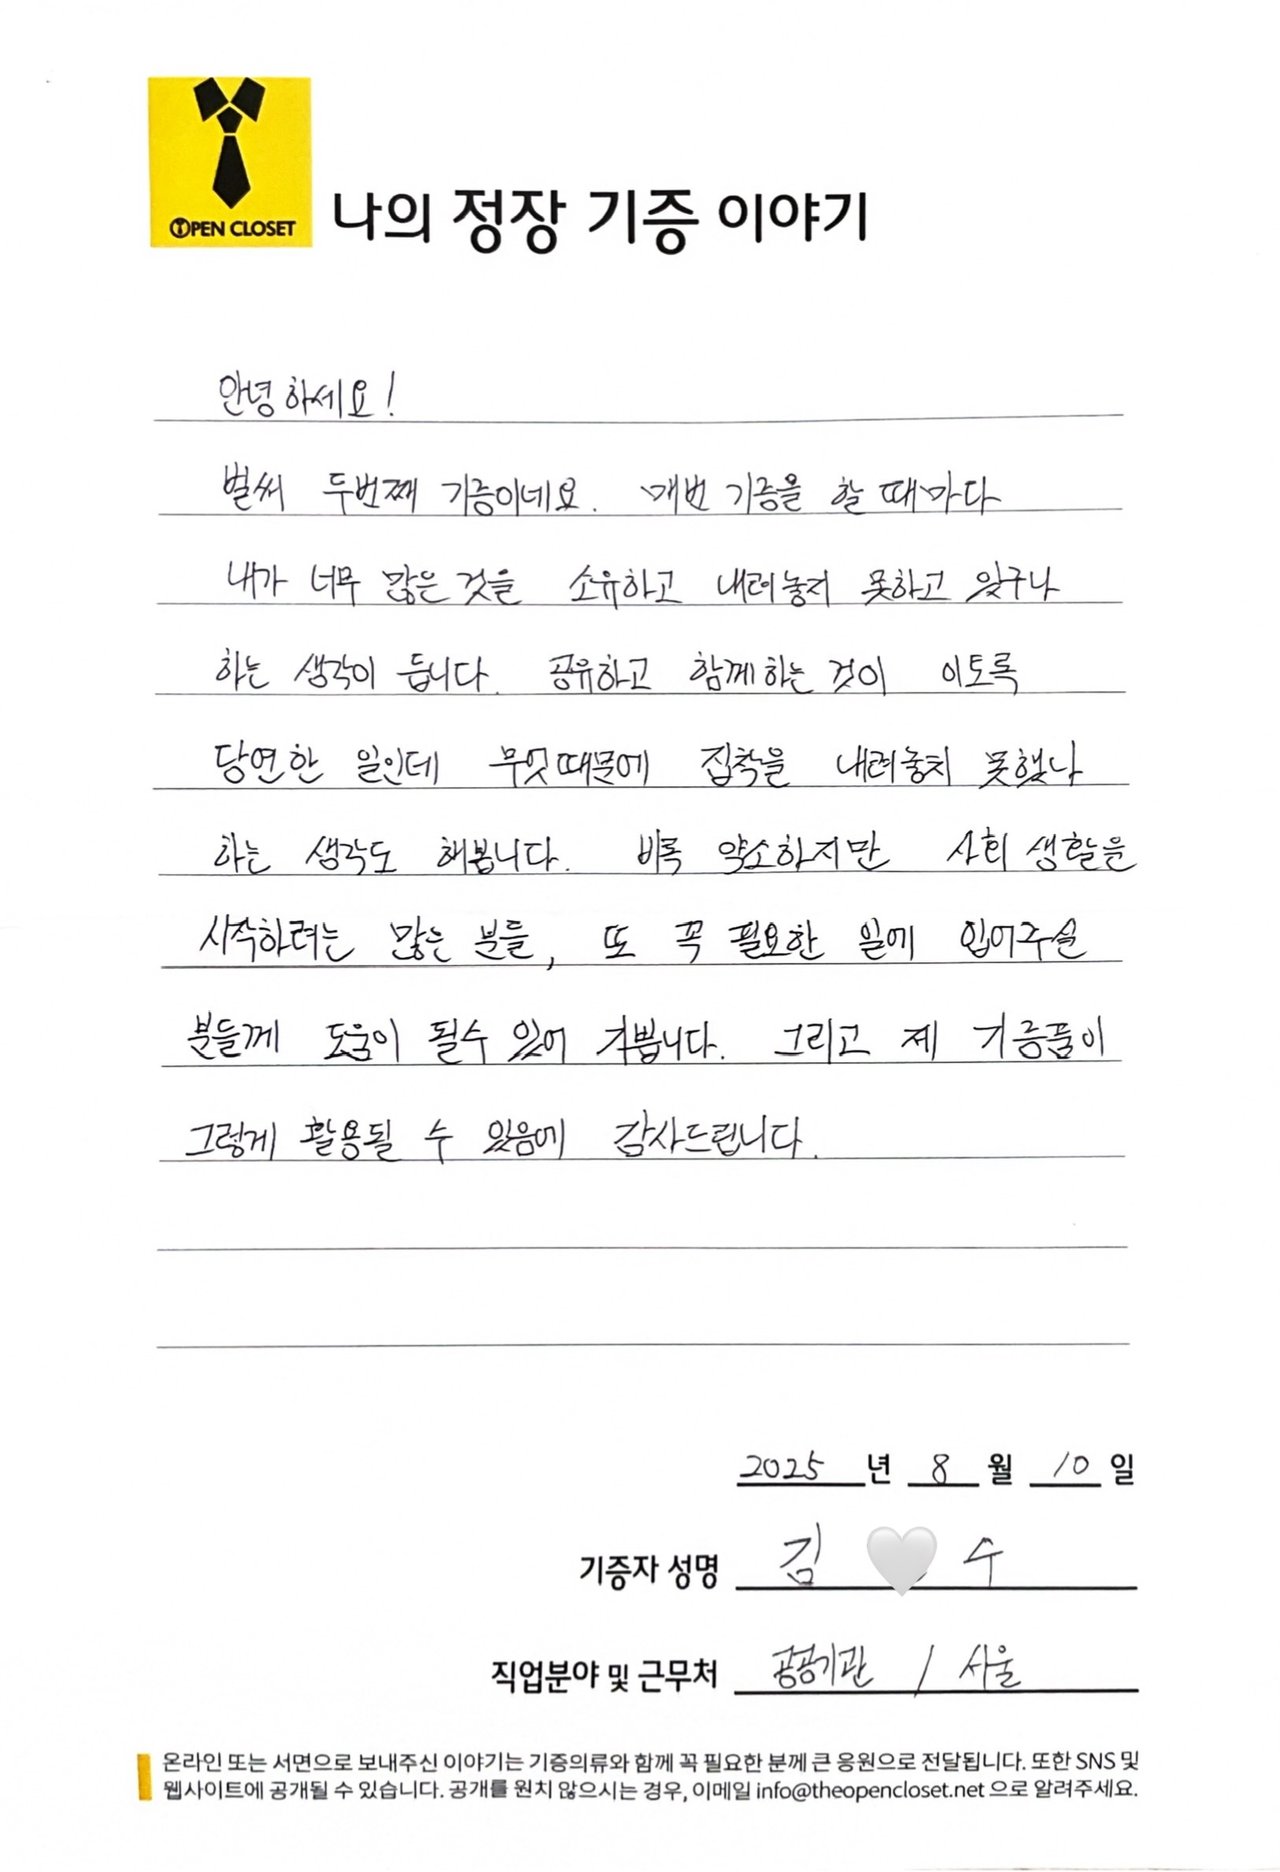 OPEN CLOSET
나의 정장 기증 이야기
안녕하세요!
벌써 두번째 기증이네요. 매번 기증을 할 때마다
내가 너무 많은 것을 소유하고 내려놓지 못하고 있구나
하는 생각이 듭니다. 공유하고 함께하는 것이 이토록
당연한 일인데 무엇때문에 집착을 내려놓지 못했나
하는 생각도 해봅니다. 비록 약소하지만 사회 생활을
시작하려는 많은 분들, 또 꼭 필요한 일에 입어주실
분들께 도움이 될수 있어 기쁩니다. 그리고 제 기증품이
그렇게 활용될 수 있음에 감사드립니다.
2025 년 8 월 10 일
기증자 성명 김 수
직업분야 및 근무처 공공기관 / 서울
온라인 또는 서면으로 보내주신 이야기는 기증의류와 함께 꼭 필요한 분께 큰 응원으로 전달됩니다. 또한 SNS 및
웹사이트에 공개될 수 있습니다. 공개를 원치 않으시는 경우, 이메일 info@theopencloset.net 으로 알려주세요.